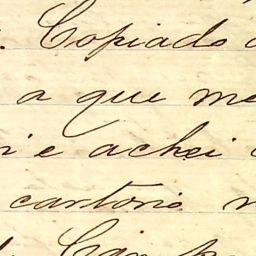 . Copiado
a que me
i e achei
cartorio